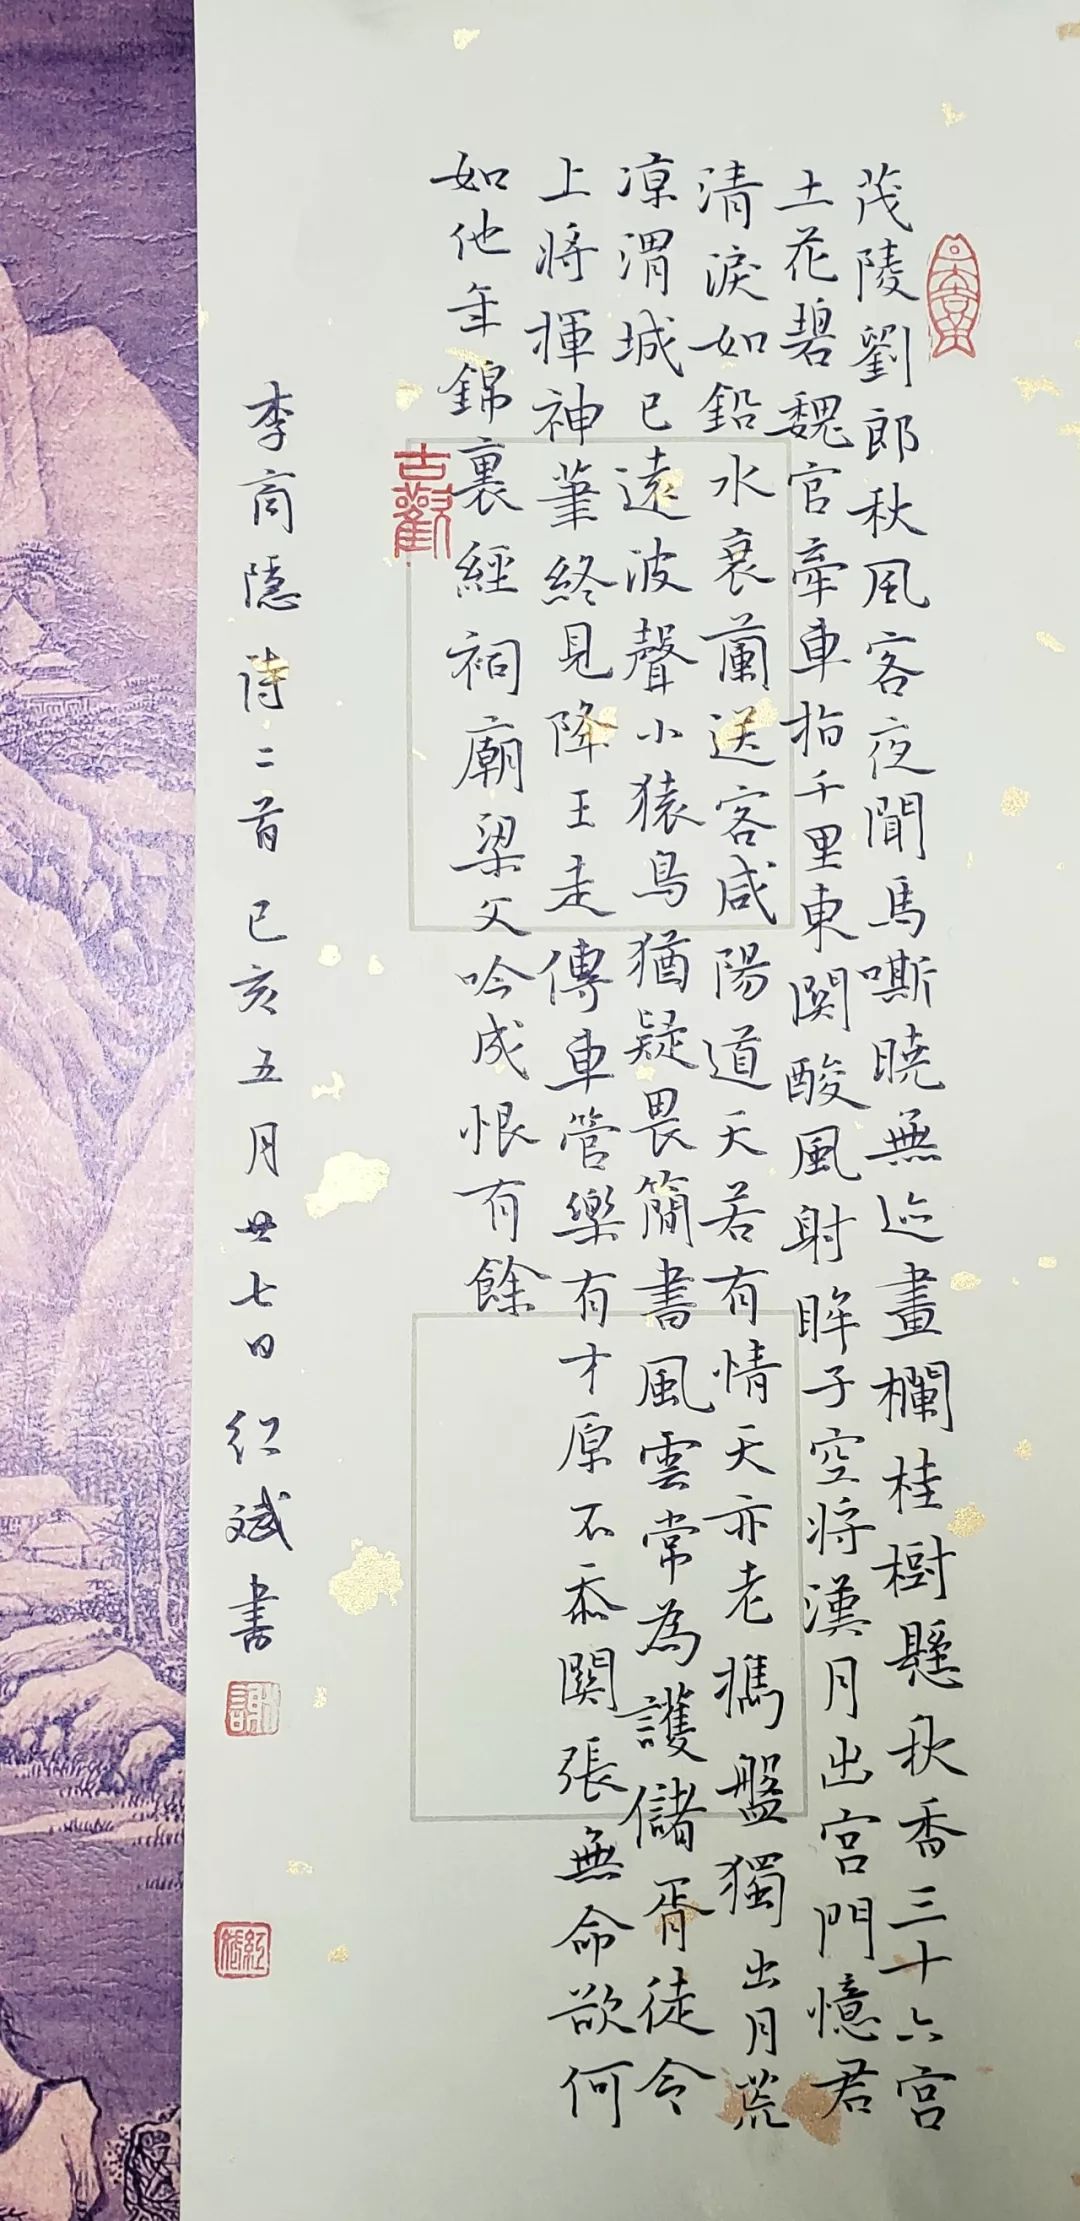 茂陵劉郎秋風客夜聞馬嘶曉無迹畫欄桂樹懸秋香三十六宮
土花碧魏官牽車指千里東関酸風射眸子空將漢月出宮門憶君
清淚如鉛水衰蘭送客咸陽道天若有情天亦老攜盤獨出月荒
涼渭城已遠波聲小猿鳥猶疑畏簡書風雲常為護儲胥徒令
上將揮神筆終見降王走傳車管樂有才原不忝関張無命欲何
如他年錦裏經祠廟梁父吟成恨有餘
古歡
李商隱詩二首己亥五月廿七日紅斌書
謝
紅斌